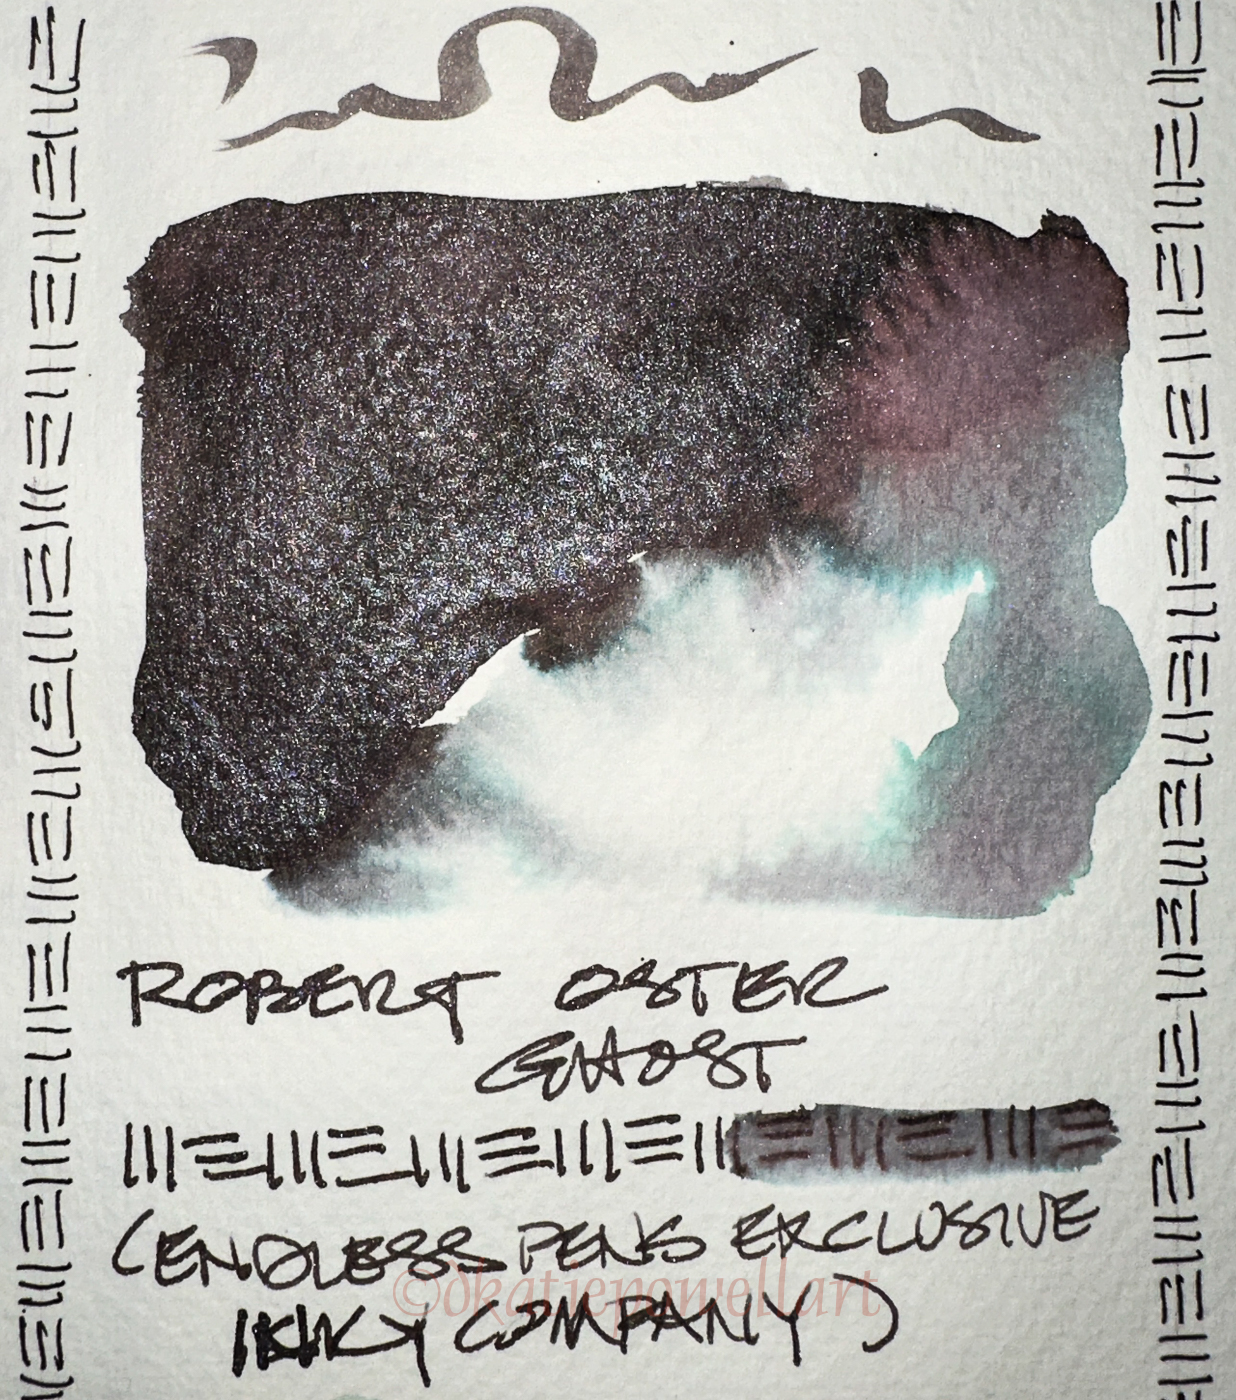 ROBERT OSTER
GHOST
(ENDLESS PENS EXCLUSIVE
©dkatiepowellart
INKY COMPANY)